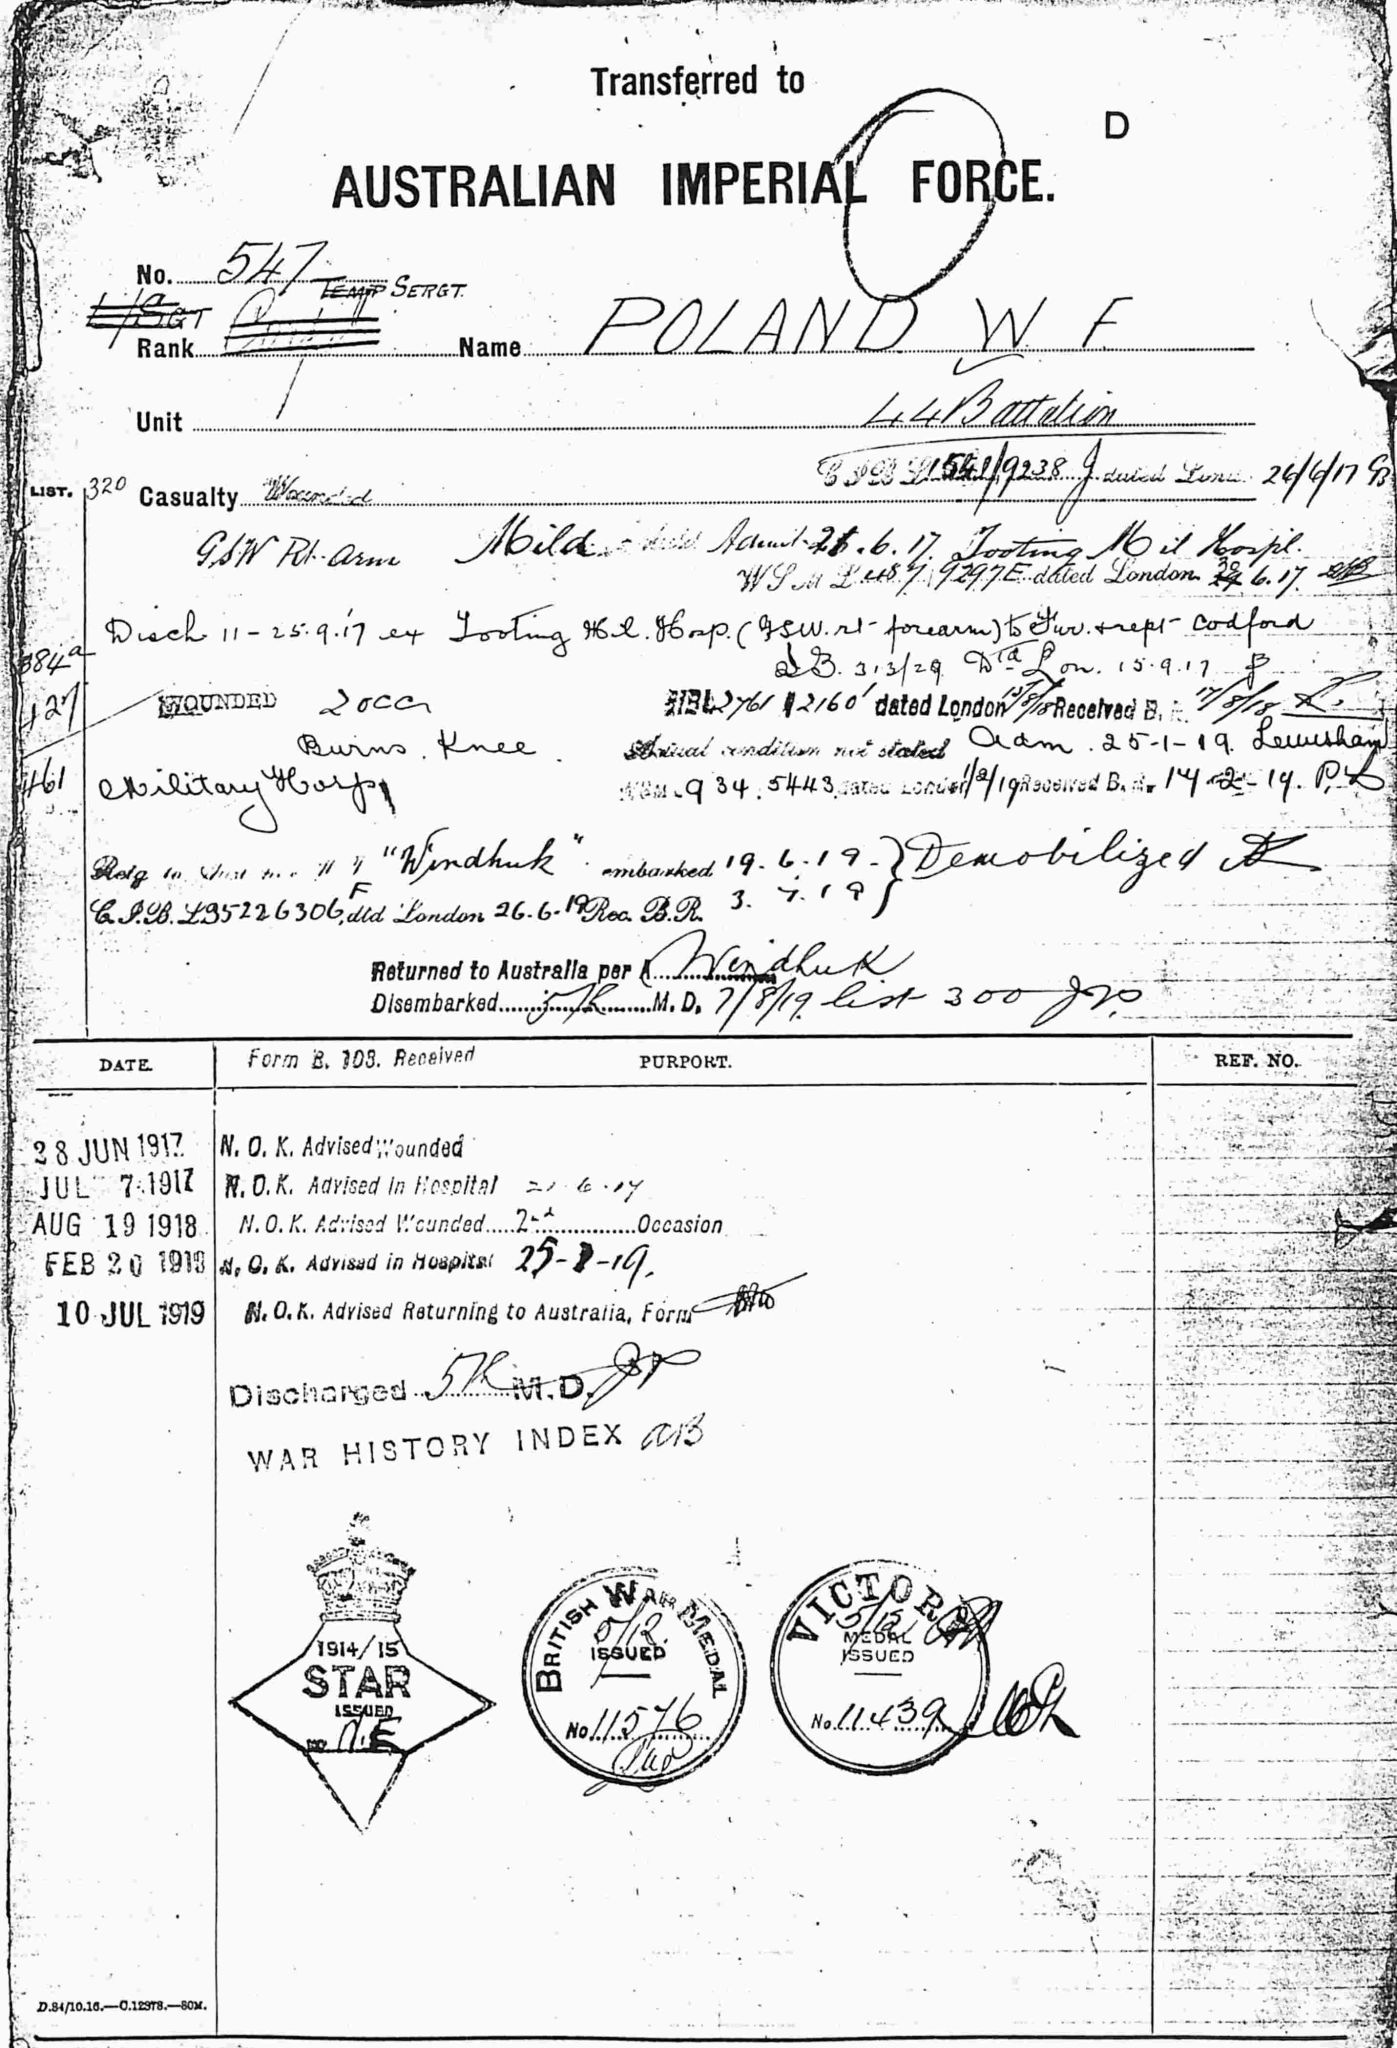 Transferred to
D
AUSTRALIAN IMPERIAL FORCE.
No. 547
TEMP SERGT.
L/SGT
Rank
Name POLAND W. F.
Unit 44 Battalion
1541/9238 dated Lond. 26/6/17
LIST. 320 Casualty Wounded
GSW Rt. Arm Mild Admit 21.6.17. Tooting Mil Hospl.
9297E dated London 6.17.
Disch 11-25.9.17 ex Tooting Hosp. (GSW. rt forearm) to Fur. & rept Codford
384a
313/29 Lon. 15.9.17
427 WOUNDED 2 occn 2761 2160 dated London 15/8/18 Received B. R. 17/8/18
Burns. Knee. Actual condition not stated Adm. 25-1-19. Lewisham
461 Military Hosp 934.5443 dated London 1/2/19 Received B. R. 14-2-19.
"Windhuk" embarked 19.6.19 } Demobilized
C.I.B. L35226306 F dtd London 26-6-19 Rec. B.R. 3.7.19
Returned to Australia per Windhuk
Disembarked 5th M. D. 7/8/19 list 300
DATE.
Form B. 103. Received
PURPORT.
REF. NO.
28 JUN 1917 N. O. K. Advised Wounded
JUL 7 1917 N. O. K. Advised in Hospital 21.6.17
AUG 19 1918 N. O. K. Advised Wounded 2nd Occasion
FEB 20 1919 N. O. K. Advised in Hospital 25-1-19.
10 JUL 1919 N. O. K. Advised Returning to Australia, Form
Discharged 5th M. D.
WAR HISTORY INDEX
1914/15
STAR
ISSUED
N.E
BRITISH WAR MEDAL
5/12
ISSUED
No 11576
VICTORY
5/12
MEDAL
ISSUED
No. 11439
D.84/10.16.—C.12978.—80M.